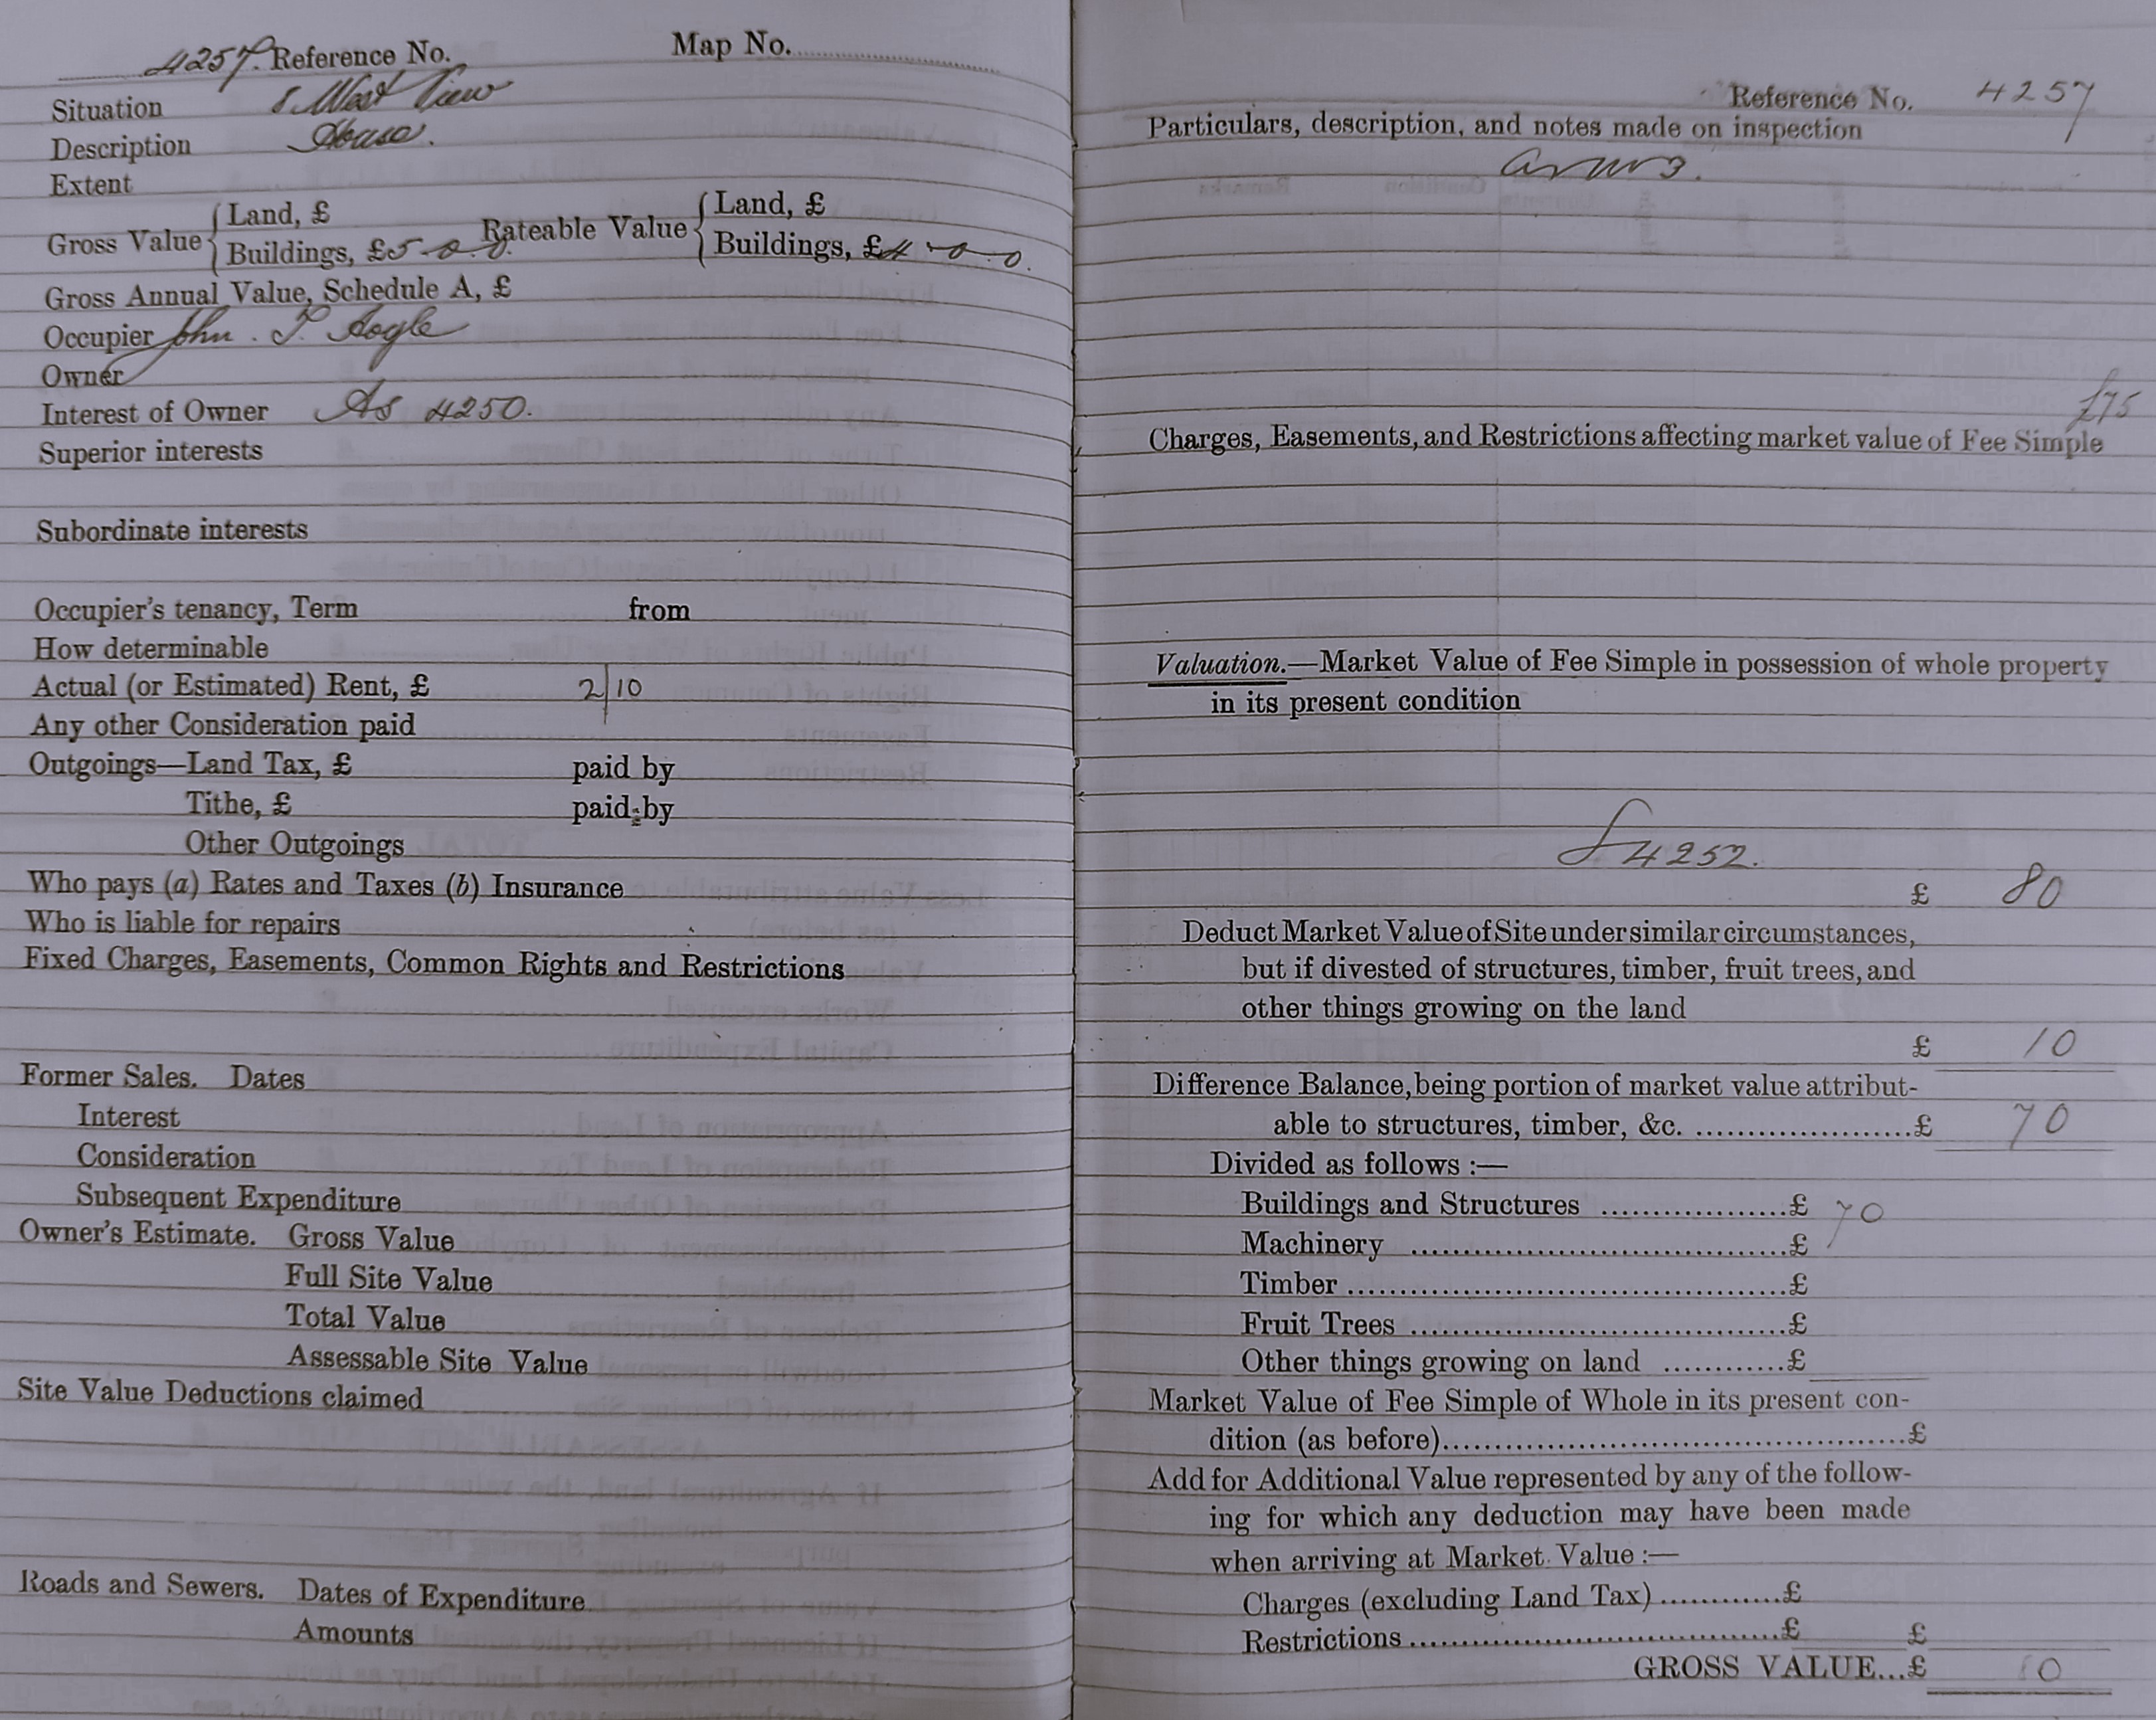 4257. Reference No. Map No.
Situation 8. West View
Description House.
Extent
Gross Value { Land, £
Buildings, £5-0-0. Rateable Value { Land, £
Buildings, £4-0-0.
Gross Annual Value, Schedule A, £
Occupier John. T. Hogle
Owner
Interest of Owner As 4250.
Superior interests
Subordinate interests
Occupier's tenancy, Term from
How determinable
Actual (or Estimated) Rent, £ 2/10
Any other Consideration paid
Outgoings—Land Tax, £ paid by
Tithe, £ paid by
Other Outgoings
Who pays (a) Rates and Taxes (b) Insurance
Who is liable for repairs
Fixed Charges, Easements, Common Rights and Restrictions
Former Sales. Dates
Interest
Consideration
Subsequent Expenditure
Owner's Estimate. Gross Value
Full Site Value
Total Value
Assessable Site Value
Site Value Deductions claimed
Roads and Sewers. Dates of Expenditure
Amounts
Reference No. 4257
Particulars, description, and notes made on inspection
£75
Charges, Easements, and Restrictions affecting market value of Fee Simple
Valuation.—Market Value of Fee Simple in possession of whole property
in its present condition
4252.
£ 80
Deduct Market Value of Site under similar circumstances,
but if divested of structures, timber, fruit trees, and
other things growing on the land
£ 10
Difference Balance, being portion of market value attribut-
able to structures, timber, &c. ......................£ 70
Divided as follows :—
Buildings and Structures ..................£ 70
Machinery ......................................£
Timber ............................................£
Fruit Trees ......................................£
Other things growing on land ............£
Market Value of Fee Simple of Whole in its present con-
dition (as before)...............................................£
Add for Additional Value represented by any of the follow-
ing for which any deduction may have been made
when arriving at Market Value :—
Charges (excluding Land Tax) ............£
Restrictions ......................................£ £
GROSS VALUE...£